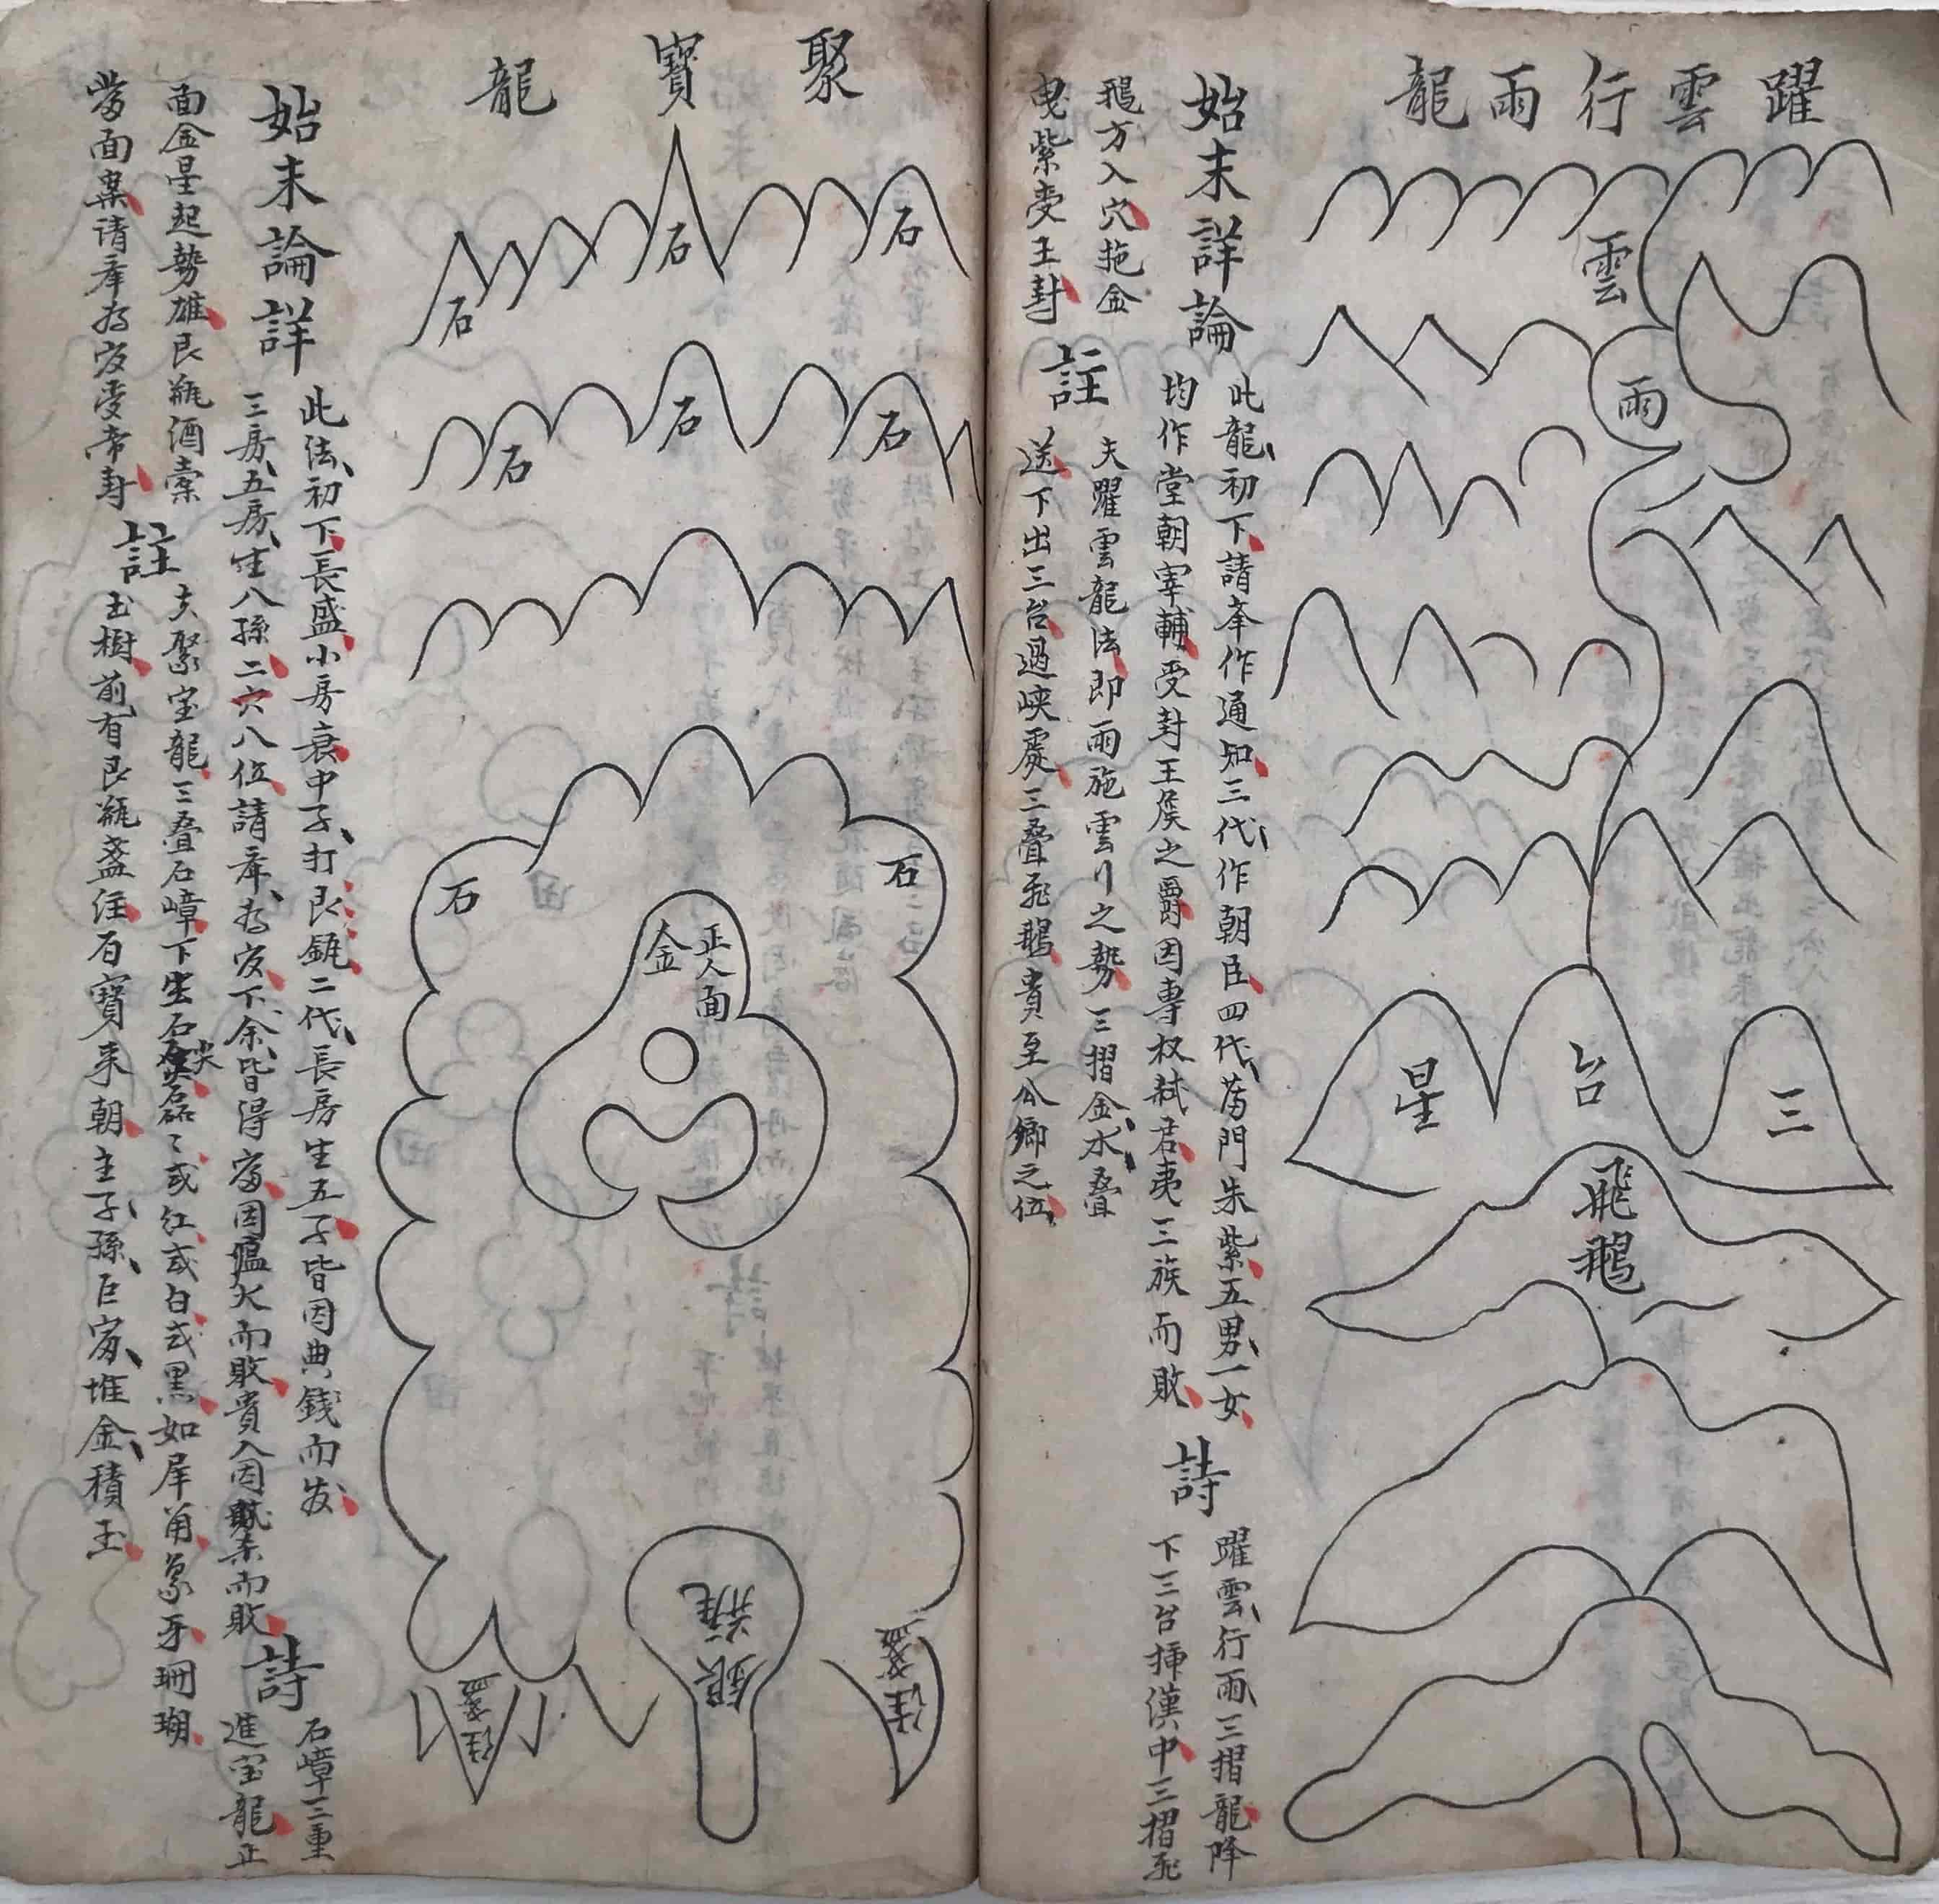 躍雲行雨龍
雲
雨
三台星
飛鵝
始末詳論
此龍初下請峯作通知三代作朝臣四代蔭門朱紫五男一女
均作堂朝宰輔受封王侯之爵因專权弒君夷三族而敗
詩
躍雲行雨三摺龍降
下三台揷漢中三摺飛
鵝方入穴拖金
曳紫受王封
註
夫躍雲龍法即雨施雲行之勢三摺金水叠
送下出三台過峡處三叠飛鵝貴至公卿之位
聚寶龍
石
石
石
石
石
石
石
石
正人面
金
銀瓶
盞注
盞注
始末論詳
此法初下長盛小房衰中子打艮瓶二代長房生五子皆因典錢而发
三房五房生八孫二六八位請峯为友下余皆得富因瘟火而敗貴人因而敗
詩
石嶂三重
進宝龍正
面金星起勢雄艮瓶酒
當面案请峯为友受帝封
註
夫聚宝龍三叠石嶂下生石尖磊〻或红或白或黑如犀角象牙珊瑚
玉樹前有艮瓶盞注百寳来朝主子孫巨富堆金積玉